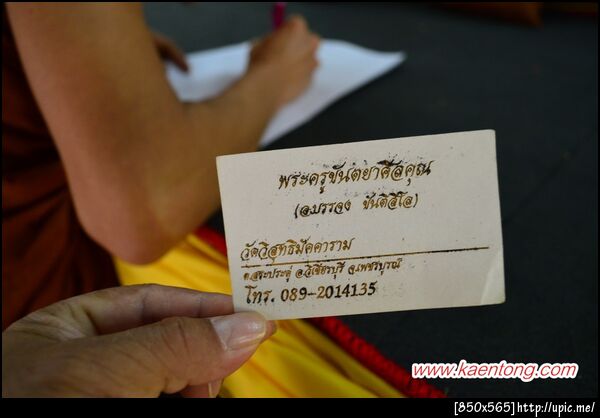 พระครูขันตยาศีลคุณ
(อ.บรรจง ขันติสีโล)
วัดวิสุทธิมัคคาราม
ต.สระประดู่ อ.วิเชียรบุรี จ.เพชรบูรณ์
โทร. 089-2014135
www.kaentong.com
[850x565]http://upic.me/